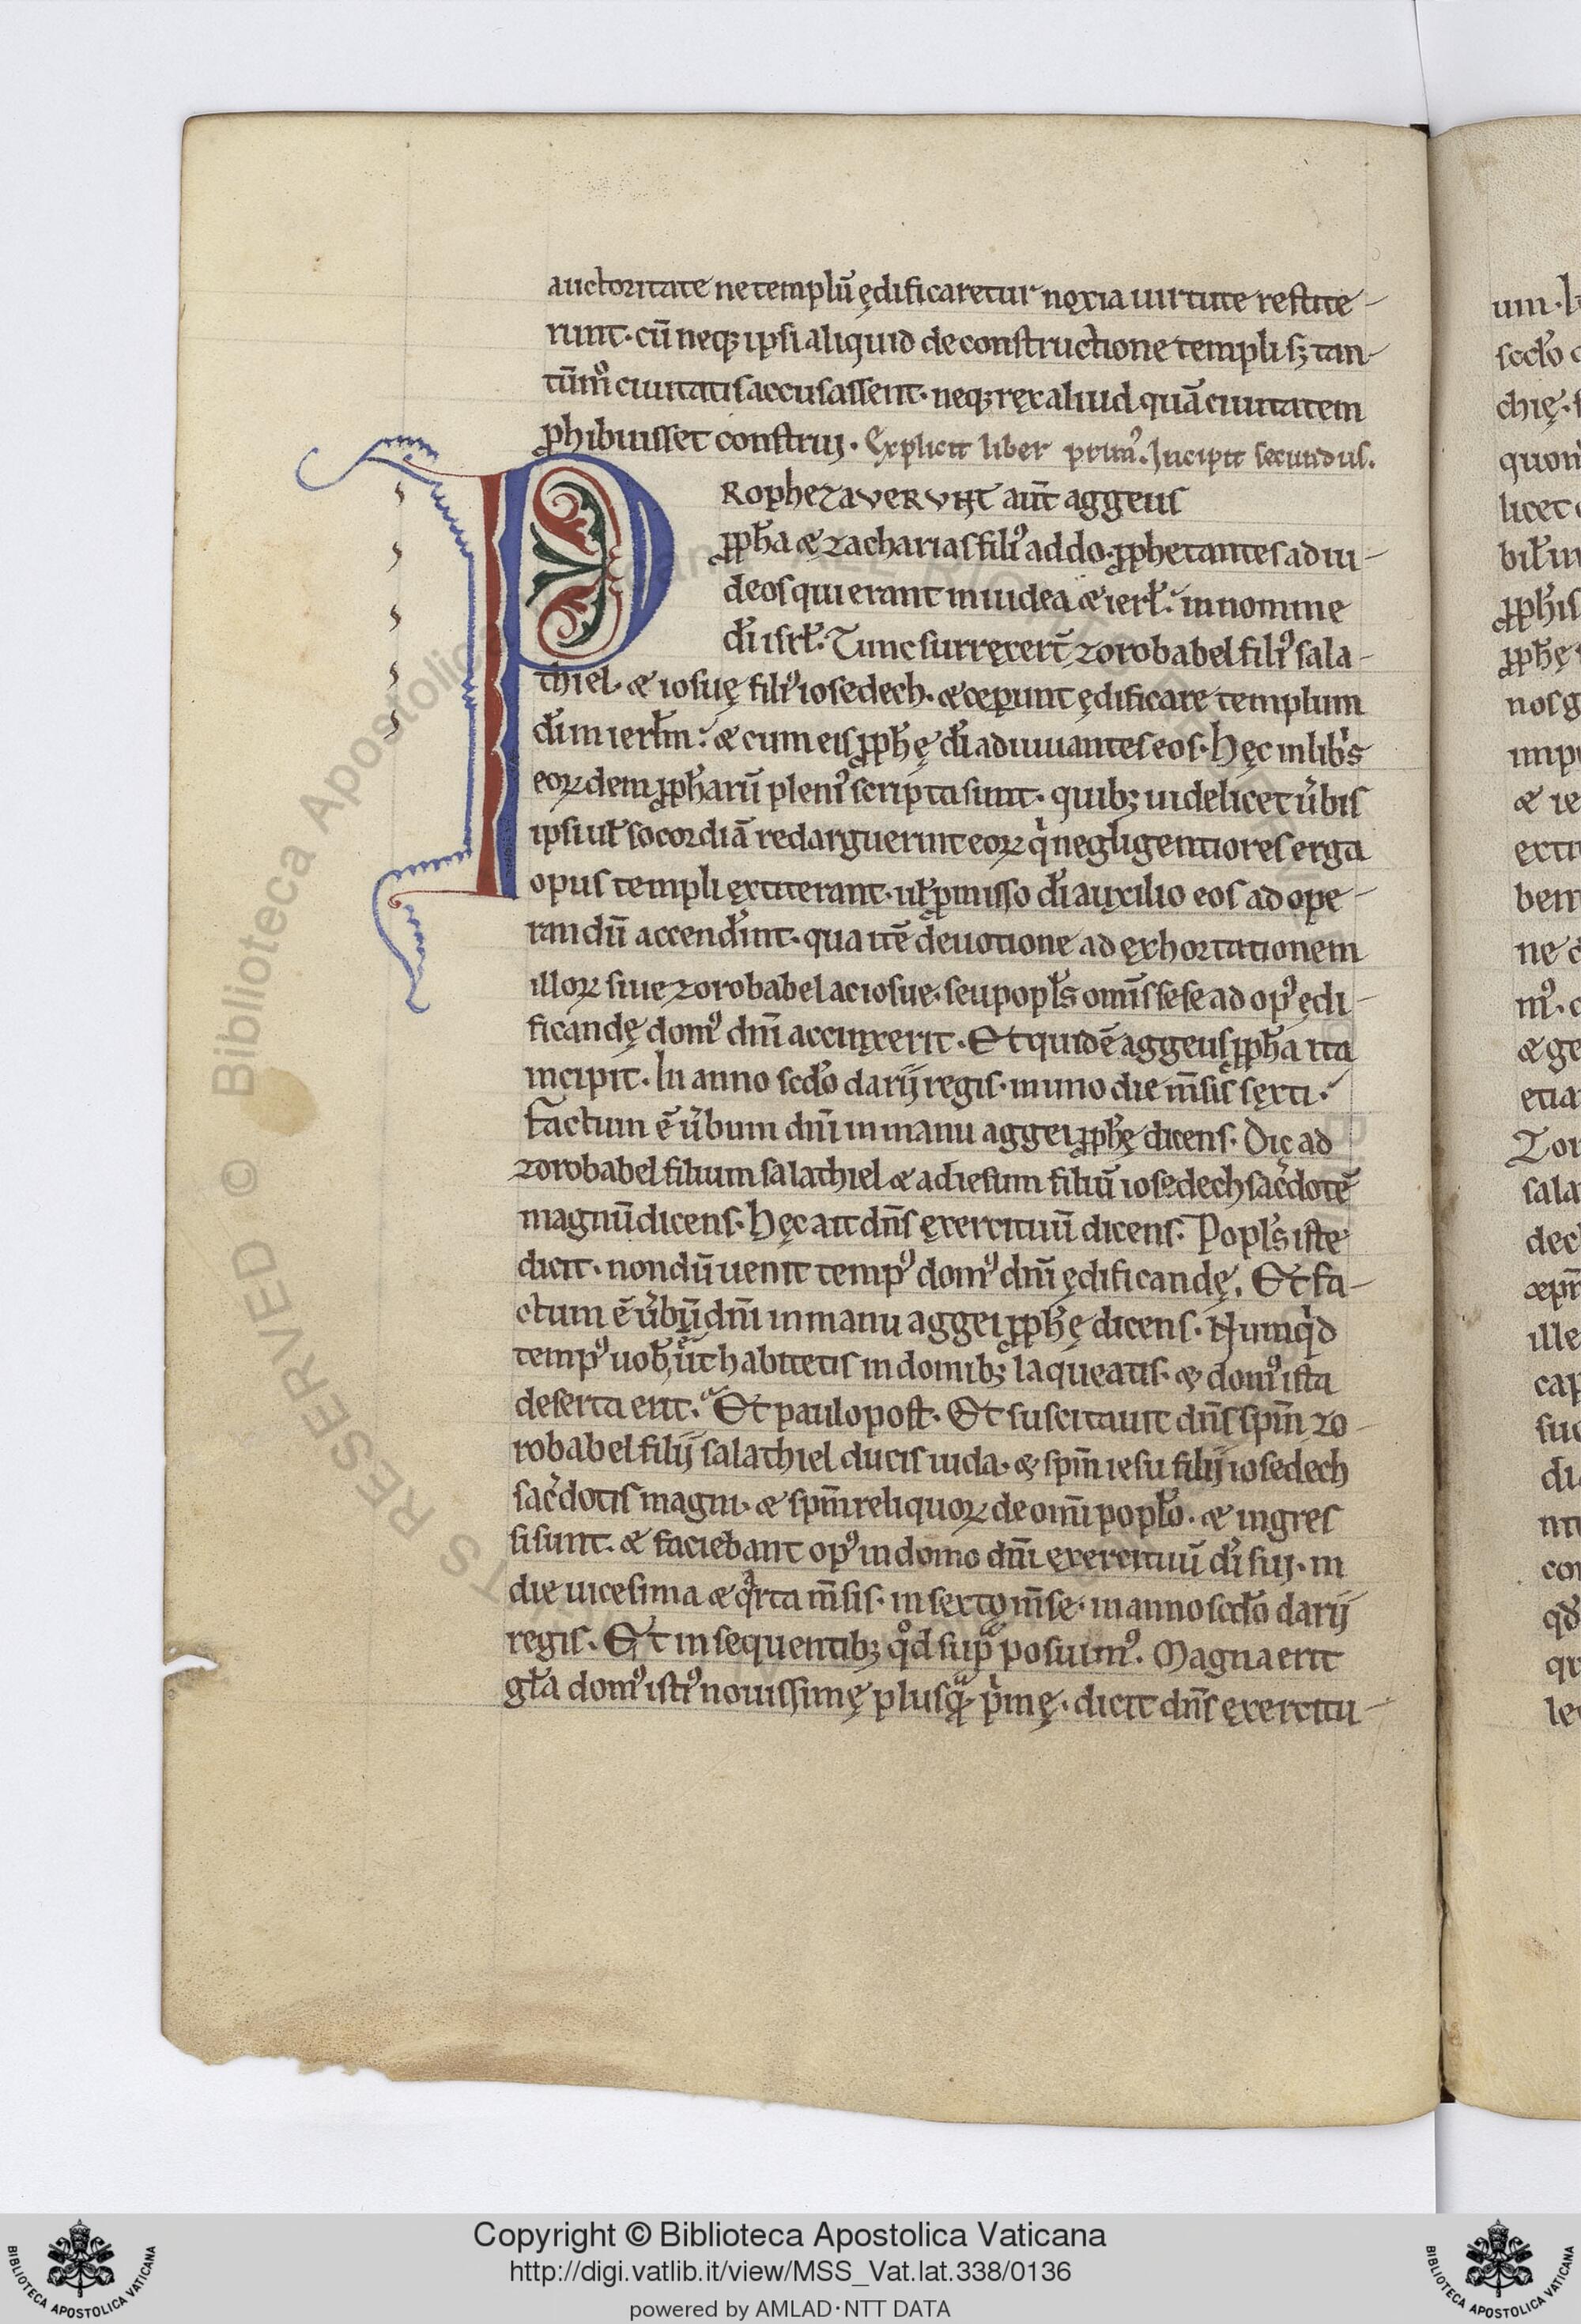 auctoritate ne templū ędificaretur noxia uirtute restite-
runt. cū neq; ipsi aliquid de constructione templi s; tan-
tūmͦ ciuitatis accusassent. neq; rex aliud quā ciuitatem
ꝓhibuisset construi. Explicit liber primꝰ. Incipit secundus.
PROPHETAVERUNT aūt aggeus
ꝓph̄a & zacharias filiꝰ addo. ꝓphetantes ad iu-
deos qui erant in iudea & ierl̄. in nomine
dī isrl̄. Tunc surrexert̄ zorobabel filiꝰ sala-
thiel. & iosuę filiꝰ iosedech. & cęperunt ędificare templum
dī in ierl̄m. & cum eis ꝓph̄ę dī adiuuantes eos. Hęc in lib̾s
eoꝝdem ꝓph̄arū pleniꝰ scripta sunt. quib; uidelicet ūbis
ipsi ul̄ socordiā redarguerint eoꝝ qͥ negligentiores erga
opus templi extiterant. ul̄ ꝓmisso dī auxilio eos ad ope-
randū accend̄int. qua itē deuotione ad exhortationem
illoꝝ siue zorobabel ac iosue. seu popl̄s om̄is sese ad opꝰ ędi-
ficandę domꝰ dn̄i accinxerit. Et quidē aggeus ꝓph̄a ita
incipit. In anno scd̄o darij regis. in uno die m̄sis sexti.
factum ē ūbum dn̄i in manu aggei ꝓph̄ę dicens. Dic ad
zorobabel filium salathiel & ad iesum filiū iosedech sac̄dotē
magnū dicens. Hęc ait dn̄s exercituū dicens. Popl̄s iste
dicit. nondū uenit tempꝰ domꝰ dn̄i ędificandę. Et fa-
ctum ē ūbū dn̄i in manu aggei ꝓph̄ę dicens. Numqͥd
tempꝰ uob̄ ē ūt habitetis in domib; laqueatis. & domꝰ ista
deserta erit. Et paulo post. Et suscitauit dn̄s sp̄m zo-
robabel filij salathiel ducis iuda. & sp̄m iesu filij iosedech
sac̄dotis magni. & sp̄m reliquoꝝ de om̄i popl̄o. & ingres
si sunt. & faciebant opꝰ in domo dn̄i exercituū dī sui. in
die uicesima & qͣrta m̄sis. in sexto m̄se. in anno scd̄o darij
regis. Et in sequentib; qͦd supͣ posuimꝰ. Magna erit
gl̄a domꝰ istiꝰ nouissimę plusqͣ̄ pͥmę. dicit dn̄s exercitu-
Copyright © Biblioteca Apostolica Vaticana
http://digi.vatlib.it/view/MSS_Vat.lat.338/0136
powered by AMLAD·NTT DATA
BIBLIOTECA APOSTOLICA VATICANA
BIBLIOTECA APOSTOLICA VATICANA